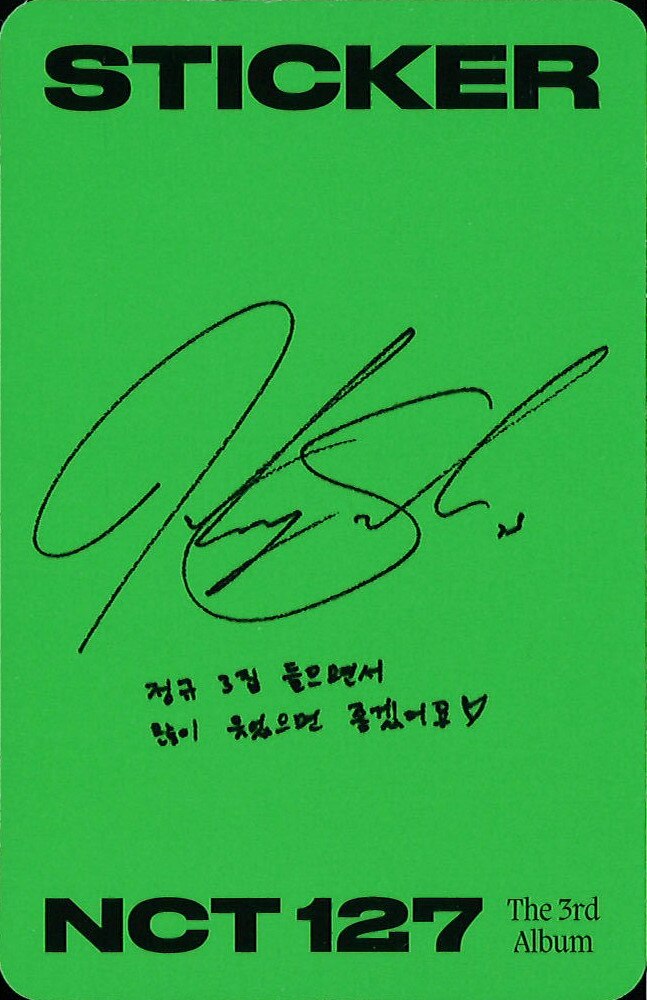 STICKER
정규 3집 들으면서
많이 웃었으면 좋겠어요♡
NCT 127
The 3rd
Album